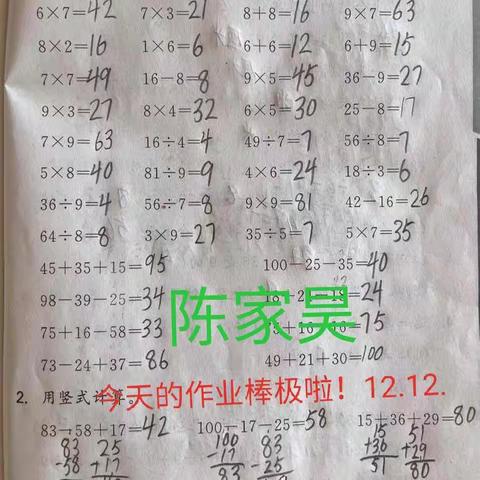 6×7=42 7×3=21 8+8=16 9×7=63
8×2=16 1×6=6 6+6=12 6+9=15
7×7=49 16-8=8 9×5=45 36-9=27
9×3=27 8×4=32 6×5=30 25-8=17
7×9=63 16÷4=4 49÷7=7 56÷8=7
5×8=40 81÷9=9 4×6=24 18÷3=6
36÷9=4 56÷7=8 9×9=81 42-16=26
64÷8=8 3×9=27 35÷5=7 5×7=35
45+35+15=95 100-25-35=40
98-39-25=34 =24
陈家昊
75+16-58=33 =75
73-24+37=86 49+21+30=100
2. 用竖式计算。
今天的作业棒极啦！12.12.
83-58+17=42 100-17-25=58 15+36+29=80
83 25 100 83 15 51
-58 +17 -17 -25 +36 +29
83 51 80